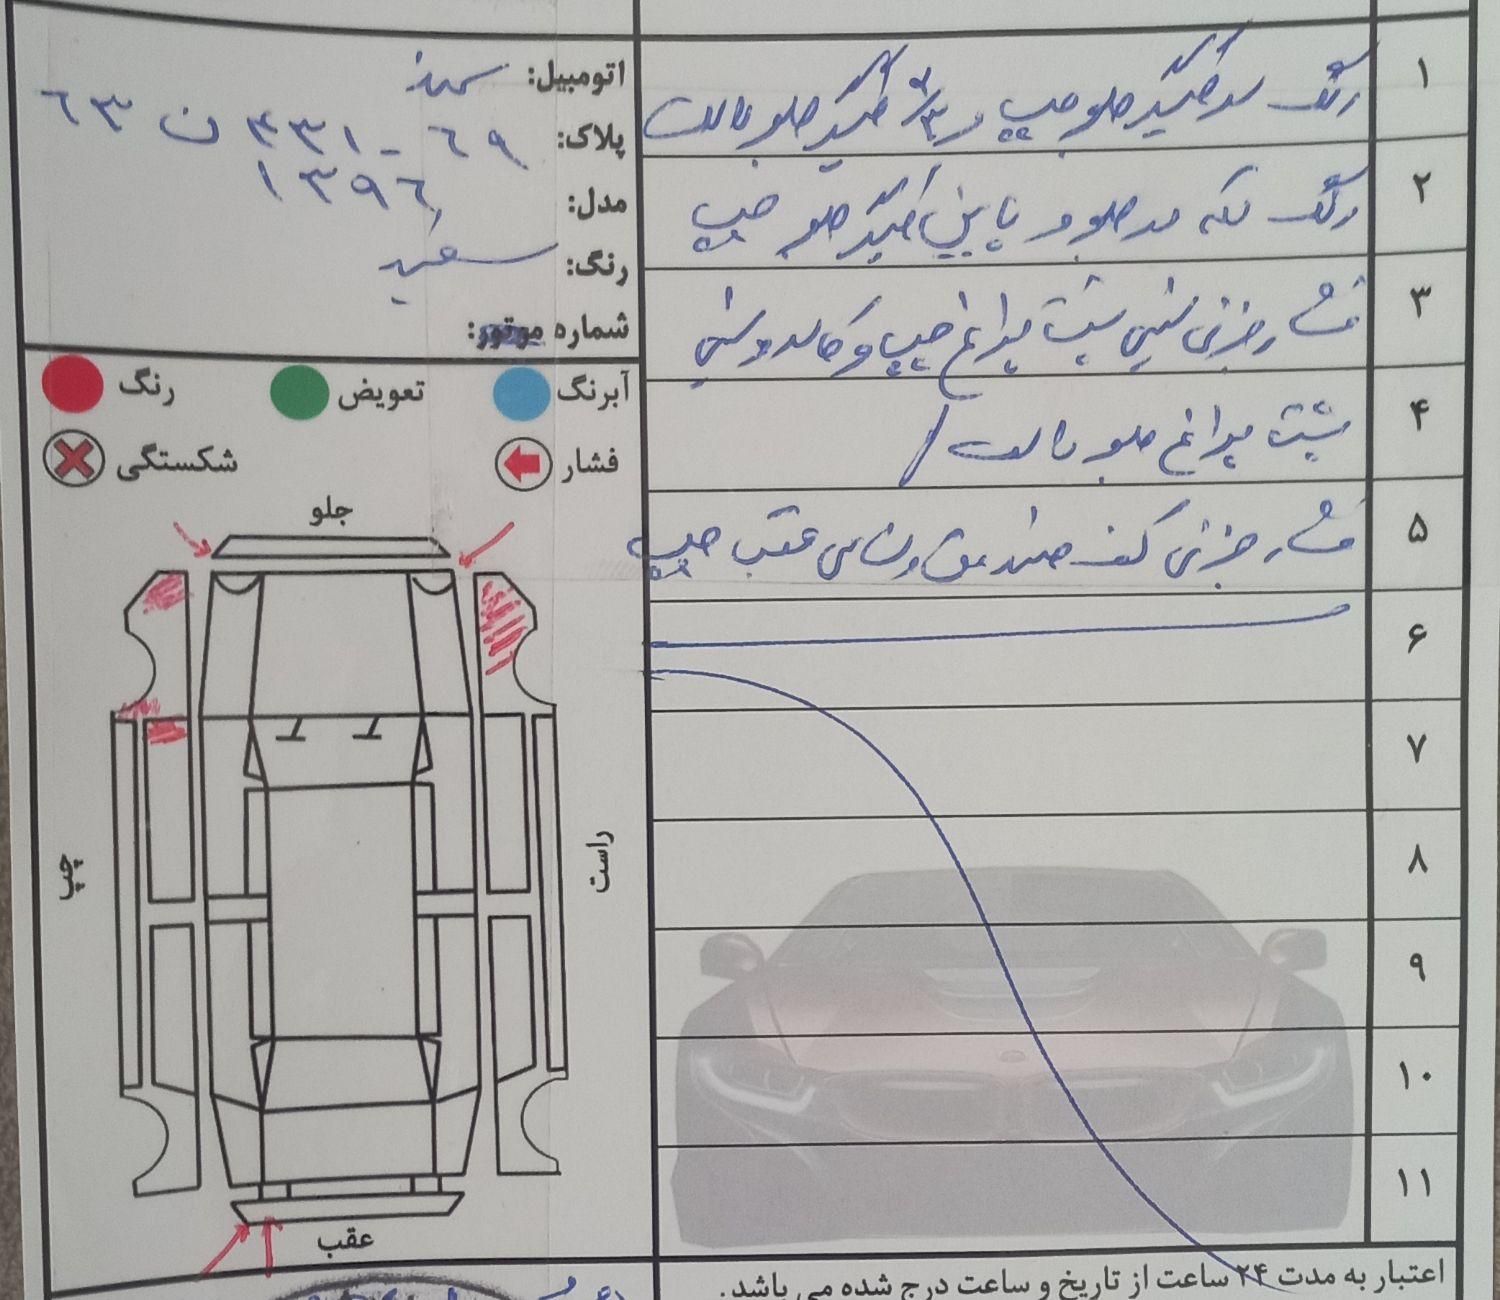 ۱ رنگ سرگلگیر جلو چپ و ۲/۳ گلگیر جلو راست
۲ رنگ لکه در جلو و پایین گلگیر جلو چپ
۳ فشار جزئی سینی پشت چراغ چپ و
۴ پشت چراغ جلو راست /
۵ فشار جزئی کف صندوق و شاسی عقب چپ
۶
۷
۸
۹
۱۰
۱۱
اتومبیل: سمند
پلاک: ۶۹ - ۴۳۱ ن ۶۳
مدل: ۱۳۹۶
رنگ: سفید
شماره موتور:
آبرنگ تعویض رنگ
فشار شکستگی
جلو
چپ
راست
عقب
اعتبار به مدت ۲۴ ساعت از تاریخ و ساعت درج شده می باشد.